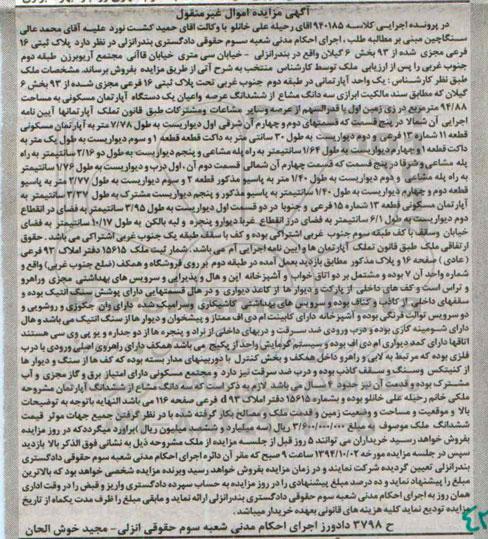 آگهی مزایده اموال غیرمنقول
در پرونده اجرایی کلاسه 940185 اقای رحیله علی خانلو با وکالت اقای حمید کشت نورد علیه آقای محمد عالی
سنگاچین مبنی بر مطالبه طلب ، اجرای احکام مدنی شعبه سوم حقوقی دادگستری بندرانزلی در نظر دارد پلاک ثبتی 16
فرعی مجزی شده از 93 بخش 6 گیلان واقع در بندرانزلی - خیابان سی متری خیابان قاآنی مجتمع آریوبرزن طبقه دوم
جنوب غربی را پس از ارزیابی ملک توسط کارشناس منتخب به شرح آتی از طریق مزایده بفروش برساند. مشخصات ملک
طبق نظر کارشناس : یک واحد آپارتمانی در طبقه دوم جنوب غربی تحت پلاک ثبتی 16 فرعی مجزی شده از 93 بخش 6
گیلان که مطابق سند مالکیت ابرازی سه دانگ مشاع از ششدانگ عرصه واعیان یک دستگاه آپارتمان مسکونی به مساحت
94/88 مترمربع در زمین اول با قدرالسهم از عرصه وسایر مشاعات ومشترکات طبق قانون تملک آپارتمانها آیین نامه
اجرایی آن شمالا در پنج قسمت که قسمتهای دوم و چهارم آن شرقی اول دیواریست به طول 7/78 متر به آپارتمان مسکونی
قطعه 11 شماره 13 فرعی و دوم دیواریست به طول 30 سانتی متر به داکت قطعه 1 و سوم دیواریست به طول یک متر به
داکت قطعه 1 و چهارم دیواریست به طول 1/64 سانتیمتر به راه پله مشاعی و پنجم دیواریست به طول دو 3/16 سانتیمتر به راه
پله مشاعی و شرقا در پنج قسمت که قسمت چهارم آن شمالی قسمت دوم آن ، اول درب و دیواریست به طول 1/76 سانتیمتر
به راه پله مشاعی و دوم دیواریست به طول 1/40 متر به پاسیو مذکور قطعه 2 و سوم دیواریست به طول 2/77 متر به پاسیو
قطعه دوم و چهارم دیواریست به طول 1/40 سانتیمتر به پاسیو مذکور و پنجم دیواریست مشترک به طول 3/37 سانتیمتر به
آپارتمان مسکونی قطعه 13 شماره 15 فرعی و جنوبا در دو قسمت اول دیواریست به طول 3/95 سانتیمتر به فضای در انقطاع
دوم دیواریست به طول 6/1 سانتیمتر به فضای درز انقطاع غربا دیوارو پنجره و لبه بالکن به طول 10/17 سانتیمتر به فضای
خیابان وسقف با کف طبقه سوم جنوب غربی اشتراکی بوده و کف با سقف طبقه یک جنوب غربی اشتراکی می باشد. حقوق
ارتفاقی ملک طبق قانون تملک آپارتمان ها و ایین نامه اجرایی آن می باشد. شمار ثبت ملک 15615 دفتر املاک 93 فرعی
(عادی) صفحه 16 و پلاک مذکور مطابق بازدید بعمل آمده در طبقه دوم بر روی فروشگاه و همکف (ضلع جنوب غربی) واقع و
شماره واحد آن 7 بوده و مشتمل بر دو اتاق خواب و آشپزخانه اپن و هال و پذیرایی و سرویس های بهداشتی مجزی وراهرو
و تراس است و کف های داخلی از پارکت و دیوار ها از کاغذ دیواری و در هال قسمتهایی دارای پوشش سنگ آنتیک بوده و
سقفهای داخلی از کاذب و کناف بوده و سرویس های بهداشتی کاشیکاری وسرامیک شده دارای وان جکوزی و روشویی و
دو سرویس توالت فرنگی بوده و آشپزخانه دارای کابینت ام دی اف ممتاز و پیشخوان و دیوار ها از سنگ آنتیک می باشد و هال
دارای شومینه گازی بوده و درب ورودی ضد سرقت و دربهای داخلی از نراد و پنجره ها از دو جداره و یو پی وی سی هستند
اتاقها دارای کمد دیواری ام دی اف بوده و سیستم گرمایش واحد از پکیج می باشد همکف دارای راهروی اصلی ورودی با درب
فلزی بوده که مرتبط به لابی و راهرو داخل همکف و بخش کنترل با دوربینهای مدار بسته بوده که کف ها از سنگ و دیوار ها
از کنیتکس وسنگ و سقف کاذب بوده و درب ضد سرقت نیز دارد و مجتمع مسکونی دارای امتیاز برق و گاز مجزی و آب
مشترک بوده و قدمت آن نیز حدود 4 سال می باشد. لازم به ذکر است که سه دانگ مشاع از ششدانگ آپارتمان مشروحه
ملکی خانم رحیله علی خانلو بوده و بشماره 15615 دفتر املاک 93 فرعی صفحه 116 می باشد النهایه باتوجه به توضیحات
بالا و موقعیت و مساحت و وضعیت زمین و قدمت ملک و مصالح بکار گرفته شده با در نظر گرفتن جمیع جهات موثر قیمت
ششدانگ ملک موصوف به مبلغ 3/600/000/000 ریال (سه میلیارد و ششصد میلیون ریال) برآورد میگردد که در روز مزایده
بفروش خواهد رسید خریداران می توانند 5 روز قبل از جلسه مزایده از ملک مشروحه ذیل به نشانی فوق الذکر بالا بازدید
سپس در جلسه مزایده مورخه 1394/10/02 ساعت 9 صبح که مقر آن دائره اجرای احکام مدنی شعبه سوم حقوقی دادگستری
بندرانزلی تعیین گردیده شرکت نمایند و در زمان مزایده بفروش خواهد رسید وبرنده مزایده شخصی خواهد بود که بالاترین
مبلغ را پیشنهاد نماید و ده درصد مبلغ پیشنهادی را در روز مزایده به حساب سپرده دادگستری واریز و قبض را در وقت اداری
همان روز به اجرای احکام مدنی شعبه سوم حقوقی دادگستری بندرانزلی ارائه نماید و مابقی مبلغ را ظرف مدت یکماه از تاریخ
مزایده تودیع نماید کلیه هزینه های قانونی بعهده خریدار میباشد.
ح 3798 دادورز اجرای احکام مدنی شعبه سوم حقوقی انزلی - مجید خوش الحان